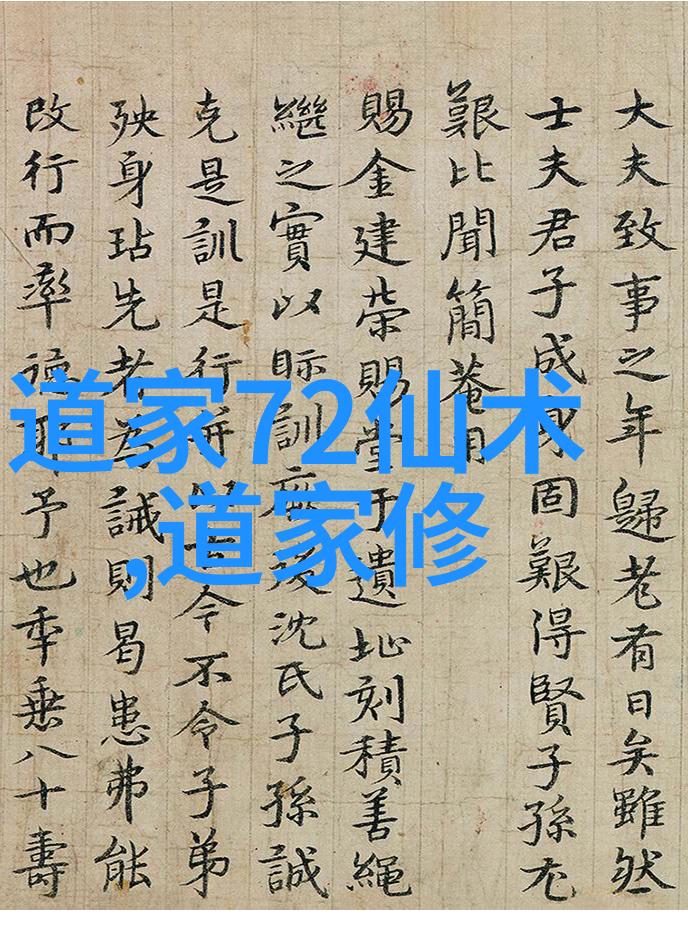 大夫致事之年歸老有日矣雖然
士夫君子成身固艱得賢子孫尤
艱比聞簡菴用
賜金建榮賜堂于遺址刻積善繩
繼之實以眎訓厥後沈氏子孫誠
克是訓是行令不令子弟
殃身玷先者為誡則曷患弗能
改行而率德耶予也年垂八十壽
道家72仙术
,道家修